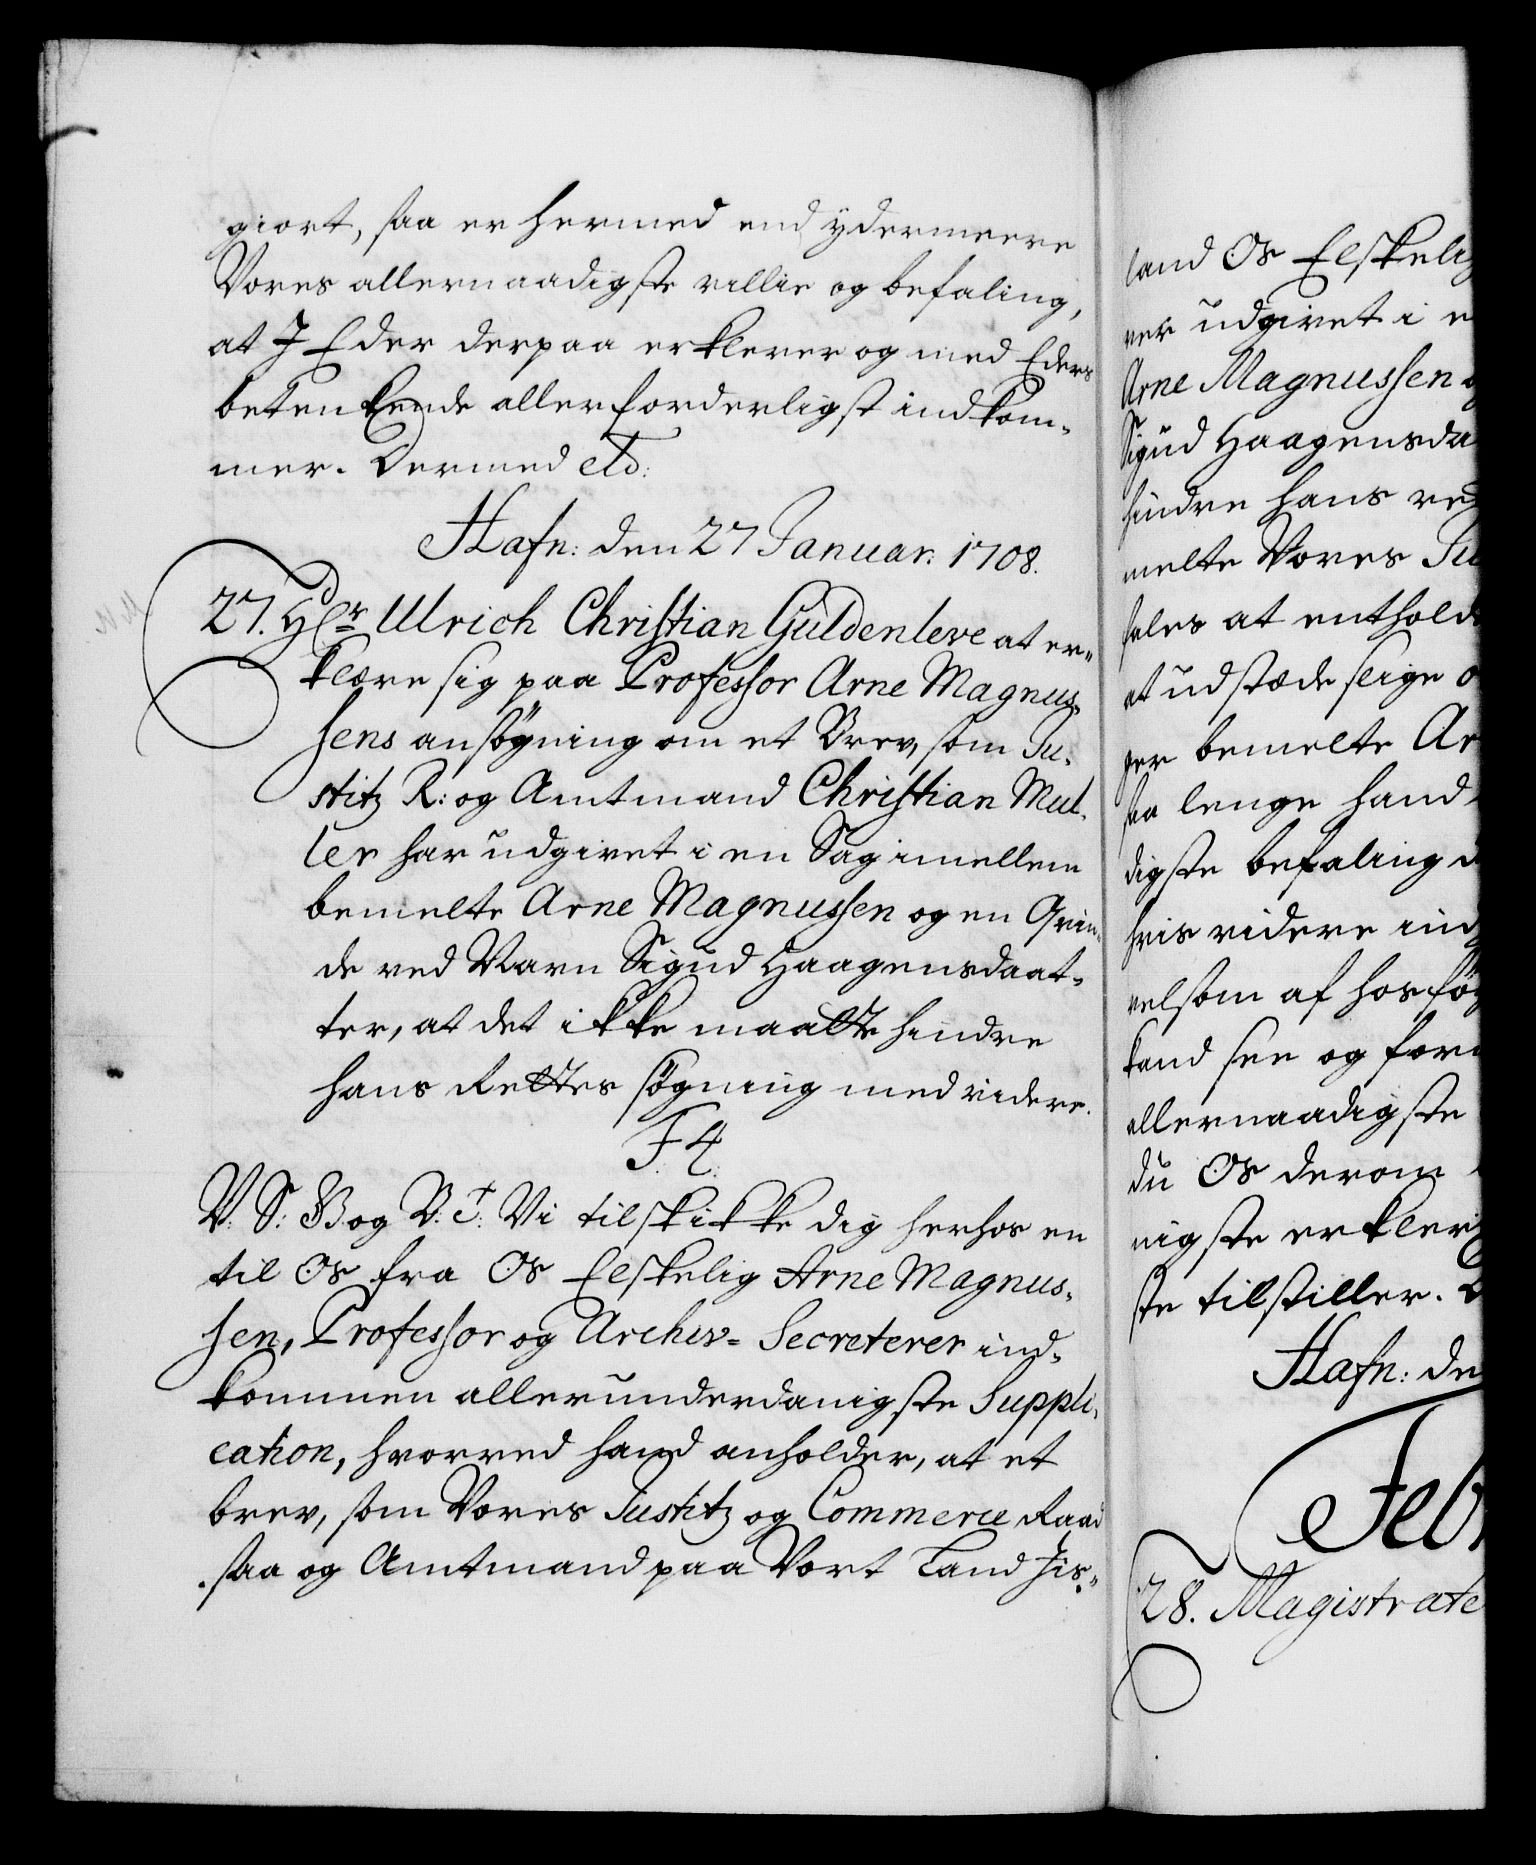 giort, saa er hermed end ydermeere
Vores allernaadigste villie og befaling,
at J Eder derpaa erklerer og med Eders
betenkende allerforderligst indkom-
mer. Dermed etc:
Hafn: den 27 Januar: 1708.
27. Hr Ulrich Christian Güldenleve at er-
klære sig paa Professor Arne Magnus-
sens ansøgning om et Brev, som Ju-
stitz R: og Amtmand Christian Mul-
ler har udgivet i en Sag imellem
bemelte Arne Magnussen og en Qvin-
de ved Navn Sigud Haagensdaat-
ter, at det ikke maatte hindre
hans Rettes søgning med videre.
F 4.
V: S: G og B: T: Vi tilskikke dig herhos en
til Os fra Os Elskelig Arne Magnus-
sen, Professor og Archiv-Secreterer ind-
kommen allerunderdanigste Suppli-
cation, hvorved hand anholder, at et
brev, som Vores Justitz og Commerce Raad
saa og Amtmand paa Vort Land Jis-
land Os Elskelig
ver udgivet i e
Arne Magnussen o
Sigud Haagensda
hindre hans re
melte Vores Ju
fales at entholde
at udstæde slige o
ger bemelte Ar
saa lenge hand
digste befaling
hvis videre ind
velsom af hosføy
kand see og for
allernaadigste
du Os derom
nigste erkleri
ste tilstiller. D
Hafn: de
Feb
28. Magistrate